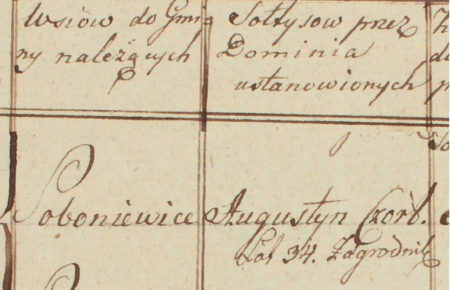 Wsiow do Gmi
ny należących
Sołtysow przez
Dominia
ustanowionych
Soboniewice
Augustyn Czort.
Lat 34. Zagrodnik